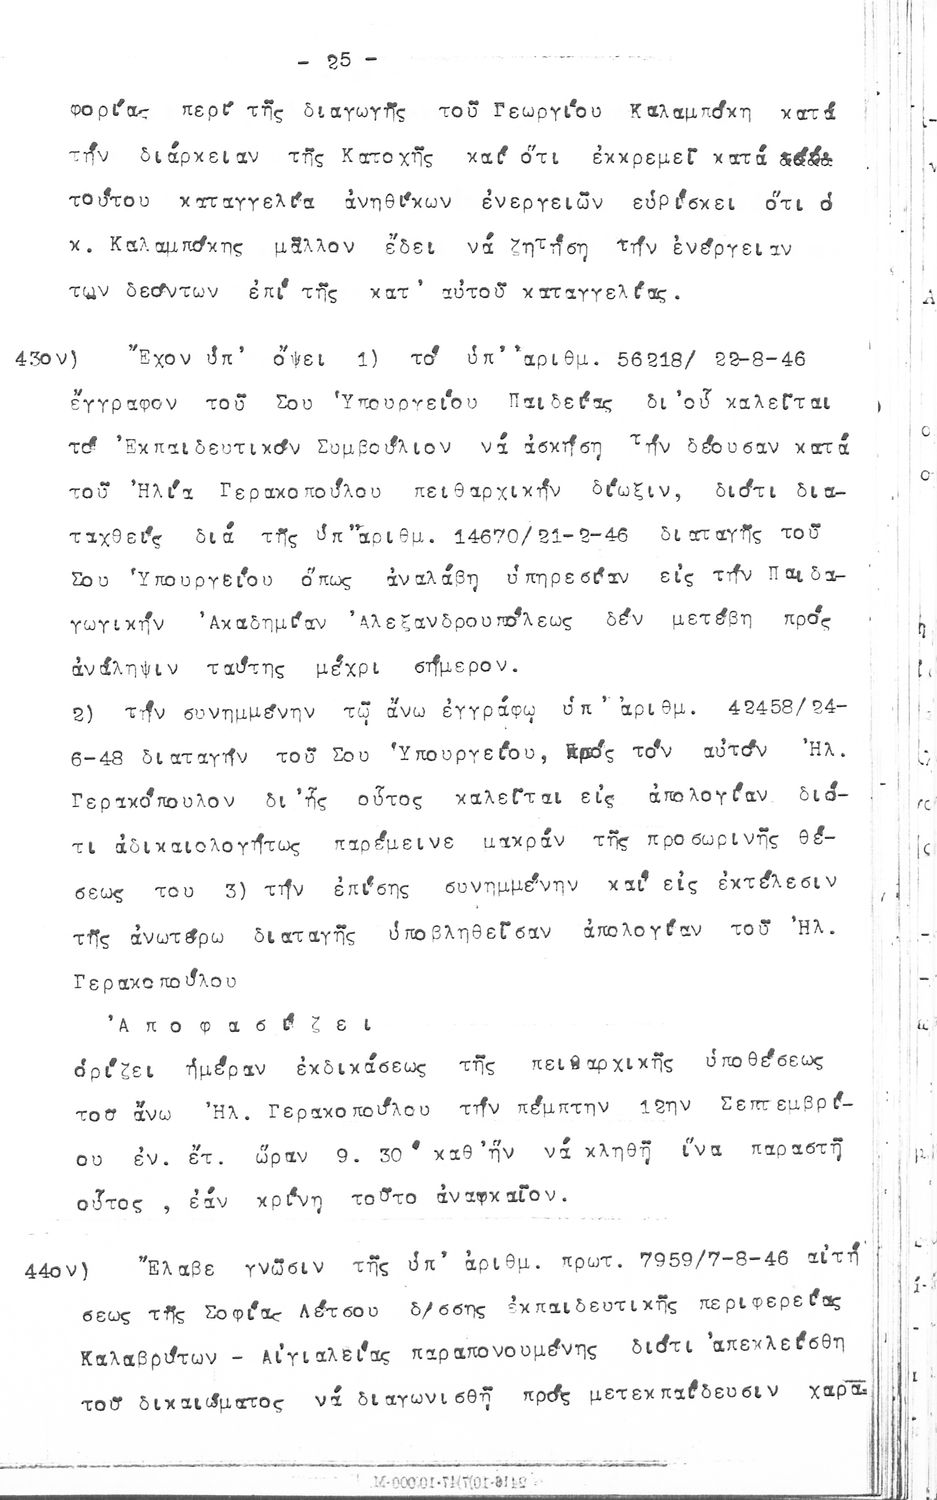 - 25 -
φορίας περί τῆς διαγωγῆς τοῦ Γεωργίου Καλαμπόκη κατά
τήν διάρκειαν τῆς Κατοχῆς καί ὅτι ἐκκρεμεῖ κατά
τούτου καταγγελία ἀνηθίκων ἐνεργειῶν εὑρίσκει ὅτι ὁ
κ. Καλαμπόκης μᾶλλον ἔδει νά ζητήση τήν ἐνέργειαν
των δεόντων ἐπί τῆς κατ' αὐτοῦ καταγγελίας.
43ον) Ἔχον ὑπ' ὄψει 1) τό ὑπ' ἀριθμ. 56218/ 22-8-46
ἔγγραφον τοῦ Σου Ὑπουργείου Παιδείας δι'οὗ καλεῖται
τό Ἐκπαιδευτικόν Συμβούλιον νά ἀσκήση τήν δέουσαν κατά
τοῦ Ἠλία Γερακοπούλου πειθαρχικήν δίωξιν, διότι δια-
ταχθείς διά τῆς ὑπ'ἀριθμ. 14670/21-2-46 διαταγῆς τοῦ
Σου Ὑπουργείου ὅπως ἀναλάβη ὑπηρεσίαν εἰς τήν Παιδα-
γωγικήν Ἀκαδημίαν Ἀλεξανδρουπόλεως δέν μετέβη πρός
ἀνάληψιν ταύτης μέχρι σήμερον.
2) τήν συνημμένην τῷ ἄνω ἐγγράφῳ ὑπ' ἀριθμ. 42458/24-
6-48 διαταγήν τοῦ Σου Ὑπουργείου, πρός τόν αὐτόν Ἠλ.
Γερακόπουλον δι'ἧς οὗτος καλεῖται εἰς ἀπολογίαν διό-
τι ἀδικαιολογήτως παρέμεινε μακράν τῆς προσωρινῆς θέ-
σεως του 3) τήν ἐπίσης συνημμένην καί εἰς ἐκτέλεσιν
τῆς ἀνωτέρω διαταγῆς ὑποβληθεῖσαν ἀπολογίαν τοῦ Ἠλ.
Γερακοπούλου
Ἀ π ο φ α σ ί ζ ε ι
ὁρίζει ἡμέραν ἐκδικάσεως τῆς πειθαρχικῆς ὑποθέσεως
τοῦ ἄνω Ἠλ. Γερακοπούλου τήν πέμπτην 12ην Σεπτεμβρί-
ου ἐν. ἔτ. ὥραν 9. 30' καθ'ἥν νά κληθῆ ἵνα παραστῆ
οὗτος , ἐάν κρίνη τοῦτο ἀναφκαῖον.
44ον) Ἔλαβε γνῶσιν τῆς ὑπ' ἀριθμ. πρωτ. 7959/7-8-46 αἰτή
σεως τῆς Σοφίας Λέτσου δ/σσης ἐκπαιδευτικῆς περιφερείας
Καλαβρύτων - Αἰγιαλείας παραπονουμένης διότι ἀπεκλείσθη
τοῦ δικαιώματος νά διαγωνισθῆ πρός μετεκπαίδευσιν χαρα-